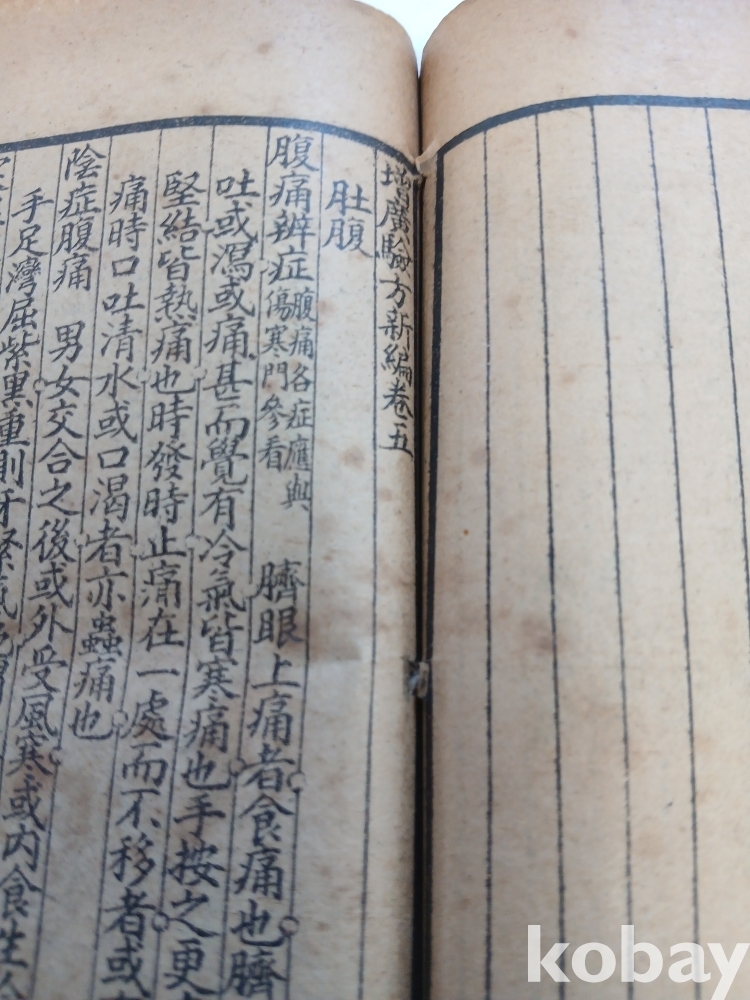 增廣驗方新編卷五
肚腹
腹痛辨症 腹痛各症應與傷寒門參看 臍眼上痛者食痛也臍
吐或瀉或痛甚而覺有冷氣皆寒痛也手按之更
堅結皆熱痛也時發時止痛在一處而不移者或
痛時口吐清水或口渴者亦蟲痛也
陰症腹痛 男女交合之後或外受風寒或內食生
手足灣屈紫黑重則牙緊氣
kobay